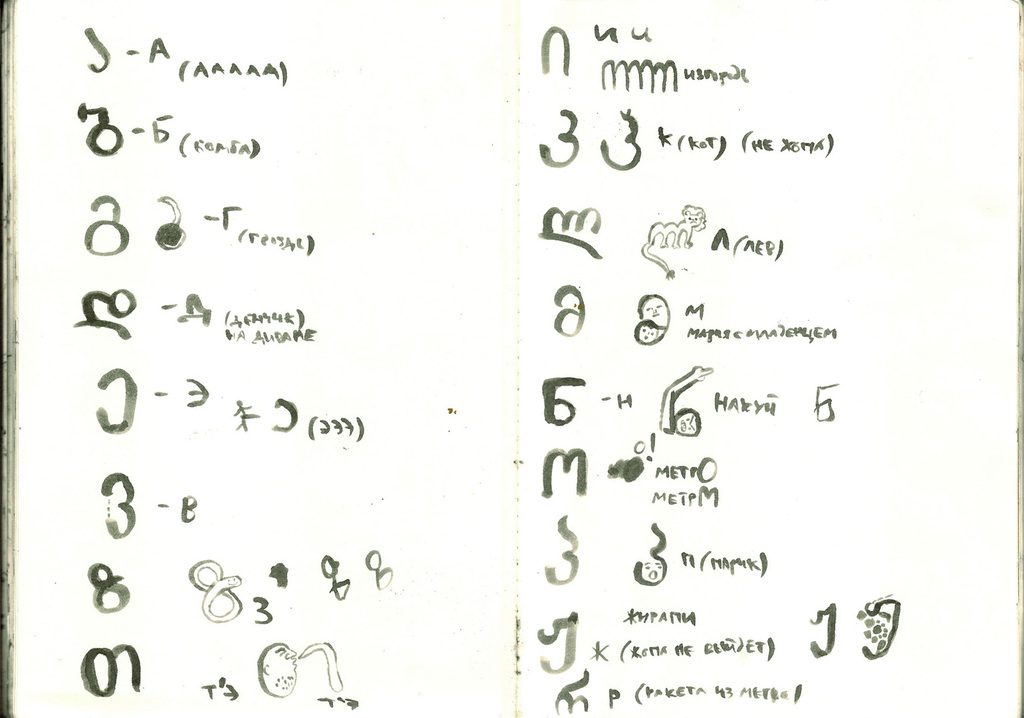 ა - А
(ААААА)
ბ - Б
გ - Г
დ - Д (ДЕНЧИК)
НА ДИВАНЕ
ე - Э
(ЭЭЭ)
ვ - В
ზ З
თ Т'Э Т'Э
ი И И
ИЗГОРОДЬ
კ К (КОТ) (НЕ ЖОПА)
ლ Л (ЛЕВ)
მ М
МАРИЯ С МЛАДЕНЦЕМ
ნ - Н НАХУЙ ნ
ო О! МЕТРО
МЕТРო
პ П (ПАРИК)
ЖИРАПИ
ჟ Ж (ЖОПА НЕ ВЫЙДЕТ) ჟ
რ Р (РАКЕТА ИЗ МЕТРО)